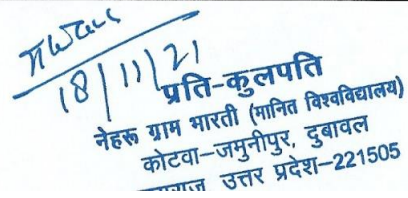 18/11/21
प्रति-कुलपति
नेहरू ग्राम भारती (मानित विश्वविद्यालय)
कोटवा-जमुनीपुर, दुबावल
उत्तर प्रदेश-221505